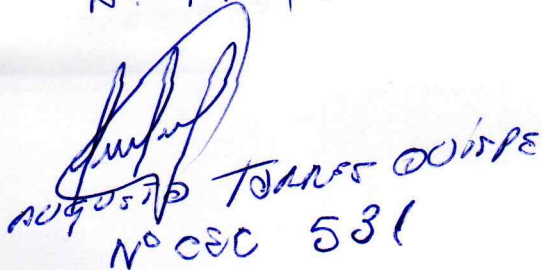 AUGUSTO TORRES QUISPE
Nº CEC 531